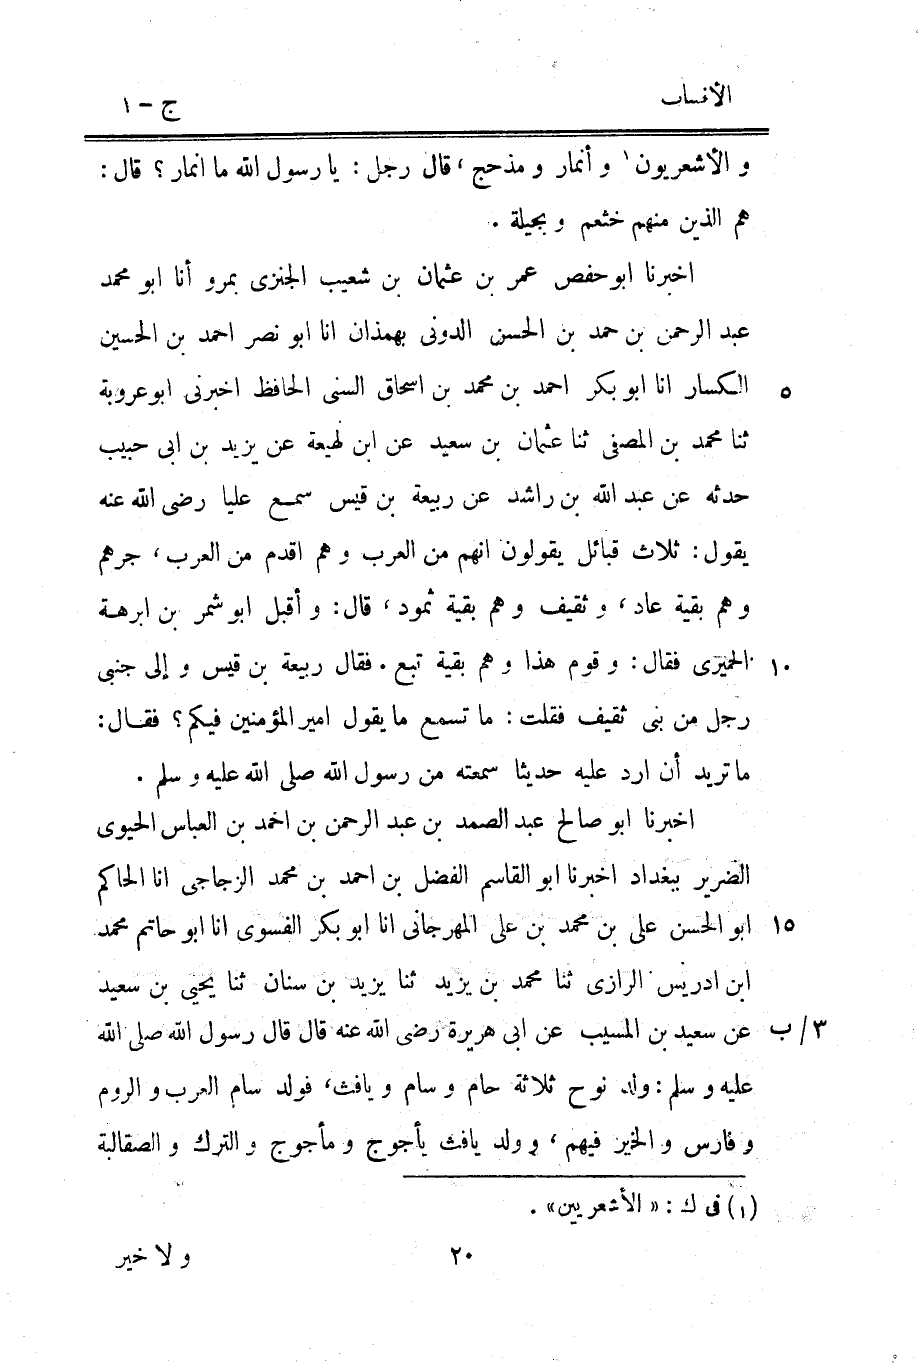 الأنساب ج - ١
و الأشعريون ١ و أنمار و مذحج ، قال رجل : يا رسول الله ما انمار ؟ قال :
هم الذين منهم خثعم و بجيلة .
اخبرنا ابو حفص عمر بن عثمان بن شعيب الجنزى بمرو أنا ابو محمد
عبد الرحمن بن حمد بن الحسن الدونى بهمذان انا ابو نصر احمد بن الحسين
٥ الكسار انا ابو بكر احمد بن محمد بن اسحاق السنى الحافظ اخبرنى ابو عروبة
ثنا محمد بن المصفى ثنا عثمان بن سعيد عن ابن لهيعة عن يزيد بن ابى حبيب
حدثه عن عبد الله بن راشد عن ربيعة بن قيس سمع عليا رضى الله عنه
يقول : ثلاث قبائل يقولون انهم من العرب و هم اقدم من العرب ، جرهم
و هم بقية عاد ، و ثقيف و هم بقية ثمود ، قال : و أقبل ابو شمر بن ابرهة
١٠ الحميرى فقال : و قوم هذا و هم بقية تبع . فقال ربيعة بن قيس و إلى جنبى
رجل من بنى ثقيف فقلت : ما تسمع ما يقول امير المؤمنين فيكم ؟ فقال :
ما تريد أن ارد عليه حديثا سمعته من رسول الله صلى الله عليه و سلم .
اخبرنا ابو صالح عبد الصمد بن عبد الرحمن بن احمد بن العباس الحيوى
الضرير ببغداد اخبرنا ابو القاسم الفضل بن احمد بن محمد الزجاجى انا الحاكم
١٥ ابو الحسن على بن محمد بن على المهرجانى انا ابو بكر الفسوى انا ابو حاتم محمد
ابن ادريس الرازى ثنا محمد بن يزيد ثنا يزيد بن سنان ثنا يحيى بن سعيد
٣/ ب عن سعيد بن المسيب عن ابى هريرة رضى الله عنه قال قال رسول الله صلى الله
عليه و سلم : ولد نوح ثلاثة حام و سام و يافث ، فولد سام العرب و الروم
و فارس و الخير فيهم ، و ولد يافث يأجوج و مأجوج و الترك و الصقالبة
(١) فى ك : « الأشعريين » .
٢٠ و لا خير